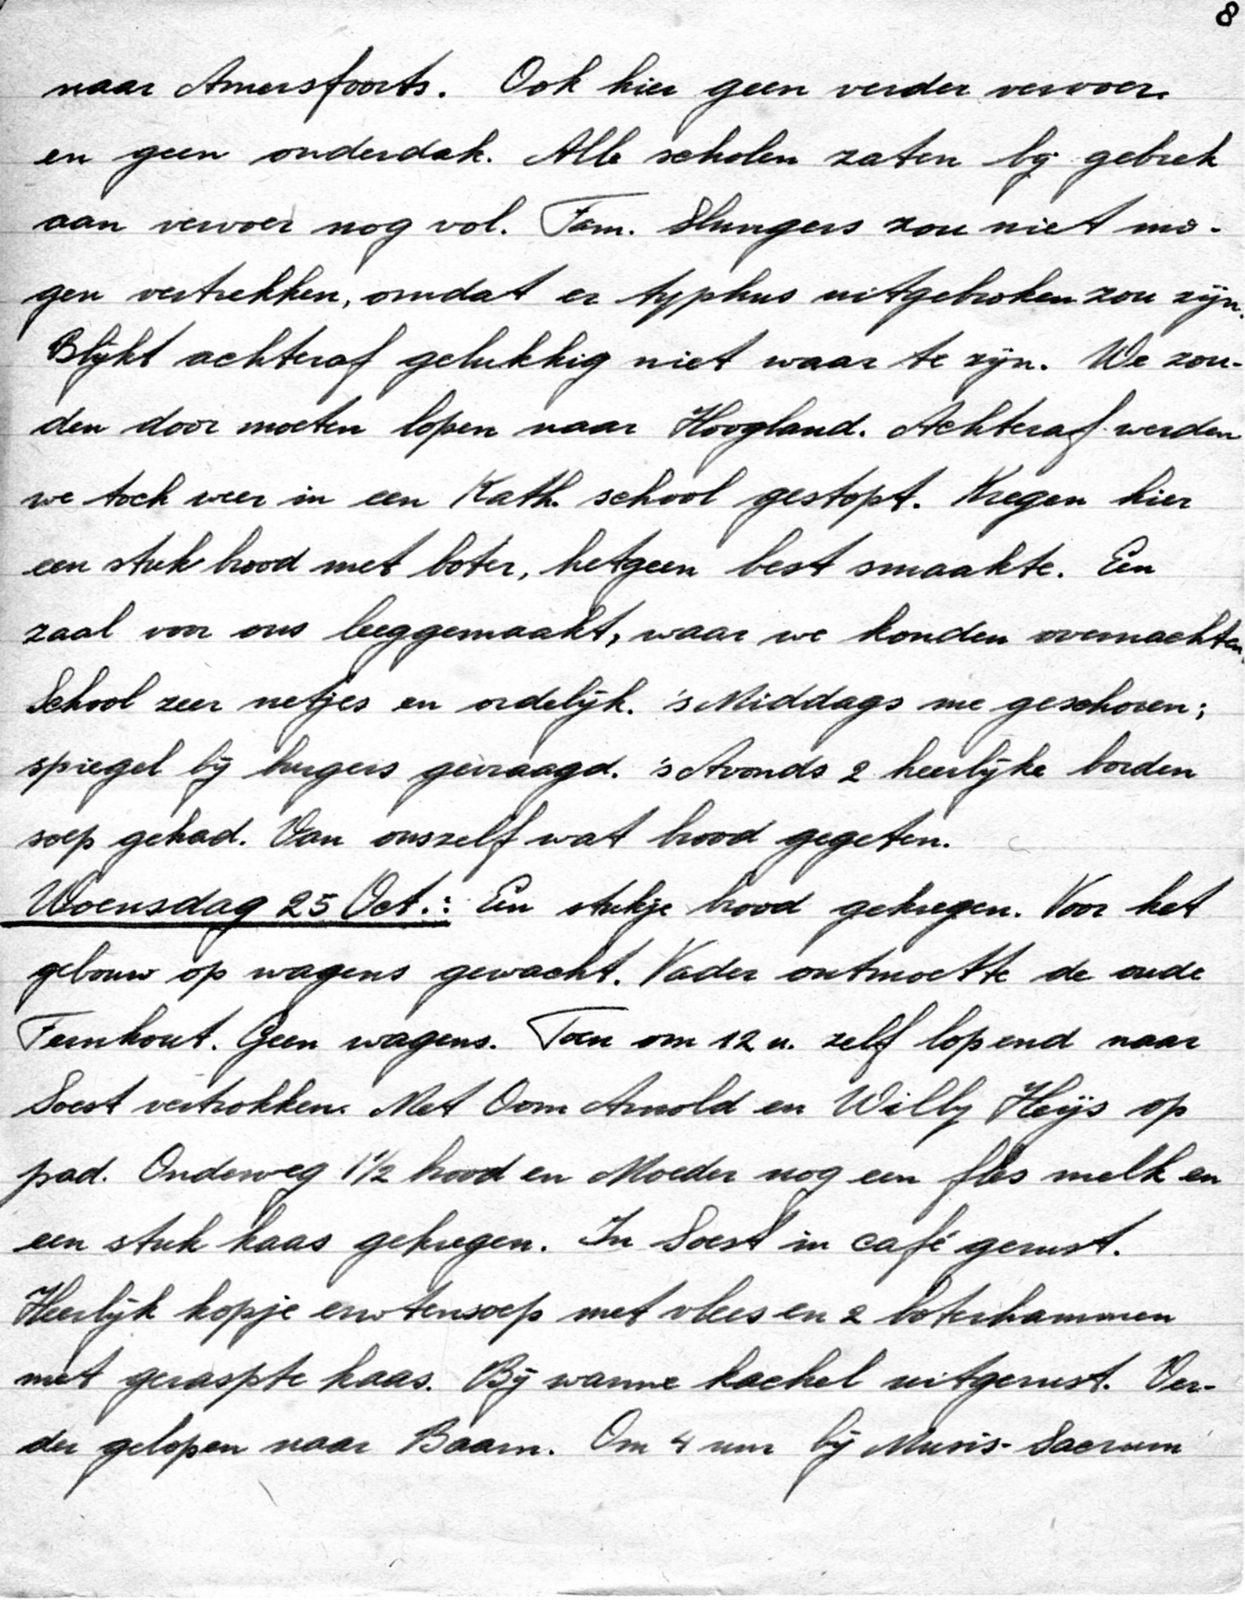 8
naar Amersfoorts. Ook hier geen verder vervoer
en geen onderdak. Alle scholen zaten bij gebrek
aan vervoer nog vol. Fam. Slungers zou niet mo-
gen vertrekken, omdat er typhus uitgebroken zou zijn.
Blijkt achteraf gelukkig niet waar te zijn. We zou-
den door moeten lopen naar Hoogland. Achteraf werden
we toch weer in een Kath. school gestopt. Kregen hier
een stuk brood met boter, hetgeen best smaakte. Een
zaal voor ons leeggemaakt, waar we konden overnachten.
School zeer netjes en ordelijk. 's Middags me geschoren;
spiegel bij burgers gevraagd. 's Avonds 2 heerlijke borden
soep gehad. Van onszelf wat brood gegeten.
Woensdag 25 Oct.: Een stukje brood gekregen. Voor het
gebouw op wagens gewacht. Vader ontmoette de oude
Fernhout. Geen wagens. Toen om 12 u. zelf lopend naar
Soest vertrokken. Met Oom Arnold en Willy Heijs op
pad. Onderweg 1 1/2 brood en Moeder nog een fles melk en
een stuk kaas gekregen. In Soest in café gerust.
Heerlijk kopje erwtensoep met vlees en 2 boterhammen
met geraspte kaas. Bij warme kachel uitgerust. Ver-
der gelopen naar Baarn. Om 4 uur bij Musis-Sacrum